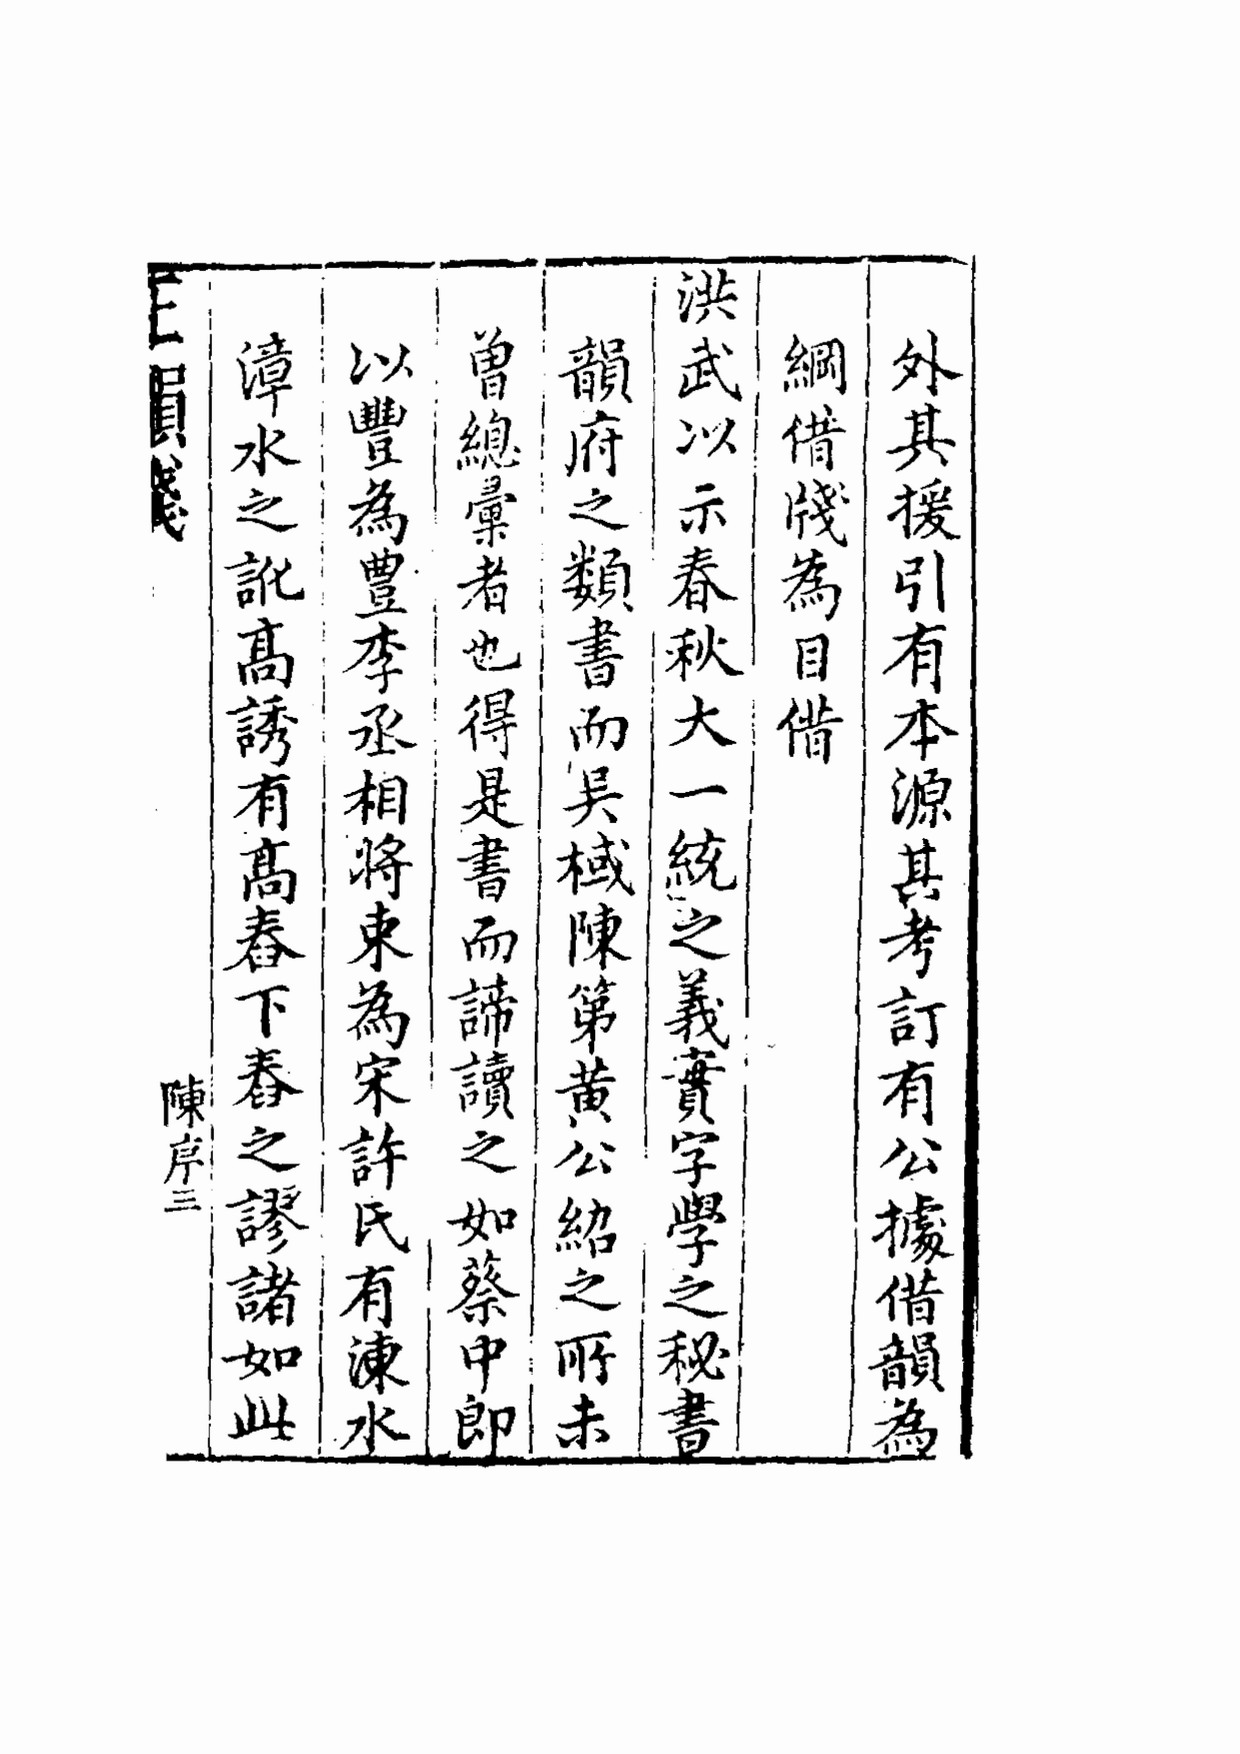 外其援引有本源其考訂有公據借韻為
綱借牋為目借
洪武以示春秋大一統之義實字學之秘書
韻府之類書而吳棫陳第黃公紹之所未
曾總彙者也得是書而諦讀之如蔡中郎
以豐為豊李丞相將東為宋許氏有涑水
漳水之訛高誘有高舂下舂之謬諸如此
韻箋
陳序三